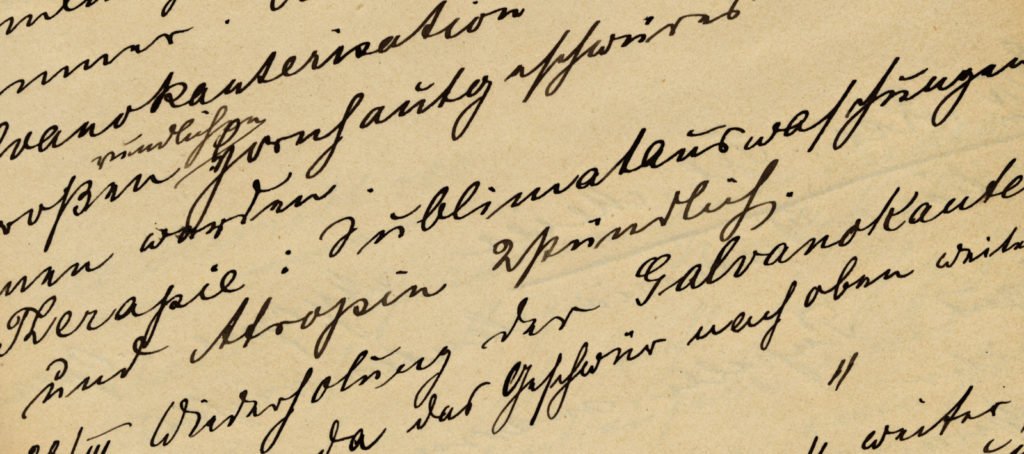 vanokauterisation
rundlichen
roßen Hornhautgeschwüres
nen worden.
Therapie: Sublimatauswaschungen
und Atropin 2stündlich.
/III Wiederholung der Galvanokaute
da das Geschwür nach oben weite
"
" weiter,